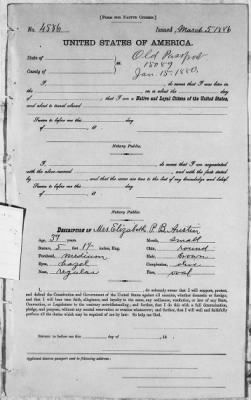 [FORM FOR NATIVE CITIZEN.]
No. 4586 Issued March 5, 1886
UNITED STATES OF AMERICA.
State of
County of
Old Passport
15089
Jan. 15-1880.
I, do swear that I was born in
the on or about the day of
, that I am a Native and Loyal Citizen of the United States,
and about to travel abroad
Sworn to before me this day
of , 18
Notary Public.
I, do swear that I am acquainted
with the above-named and with the facts stated
by and that the same are true to the best of my knowledge and belief.
Sworn to before me this day
of , 18
Notary Public.
DESCRIPTION OF Mrs. Elizabeth P. B. Austin
Age, 39 years. Mouth, small
Stature, 5 feet inches, Eng. Chin, round
Forehead, medium Hair, brown
Eyes, hazel Complexion, olive
Nose, regular Face, oval
I, do solemnly swear that I will support, protect,
and defend the Constitution and Government of the United States against all enemies, whether domestic or foreign;
and that I will bear true faith, allegiance, and loyalty to the same, any ordinance, resolution, or law of any State,
Convention, or Legislature to the contrary notwithstanding; and further, that I do this with a full determination,
pledge, and purpose, without any mental reservation or evasion whatsoever; and further, that I will well and faithfully
perform all the duties which may be required of me by law: So help me God.
Sworn to before me this day of , 18
Applicant desires passport sent to following address: